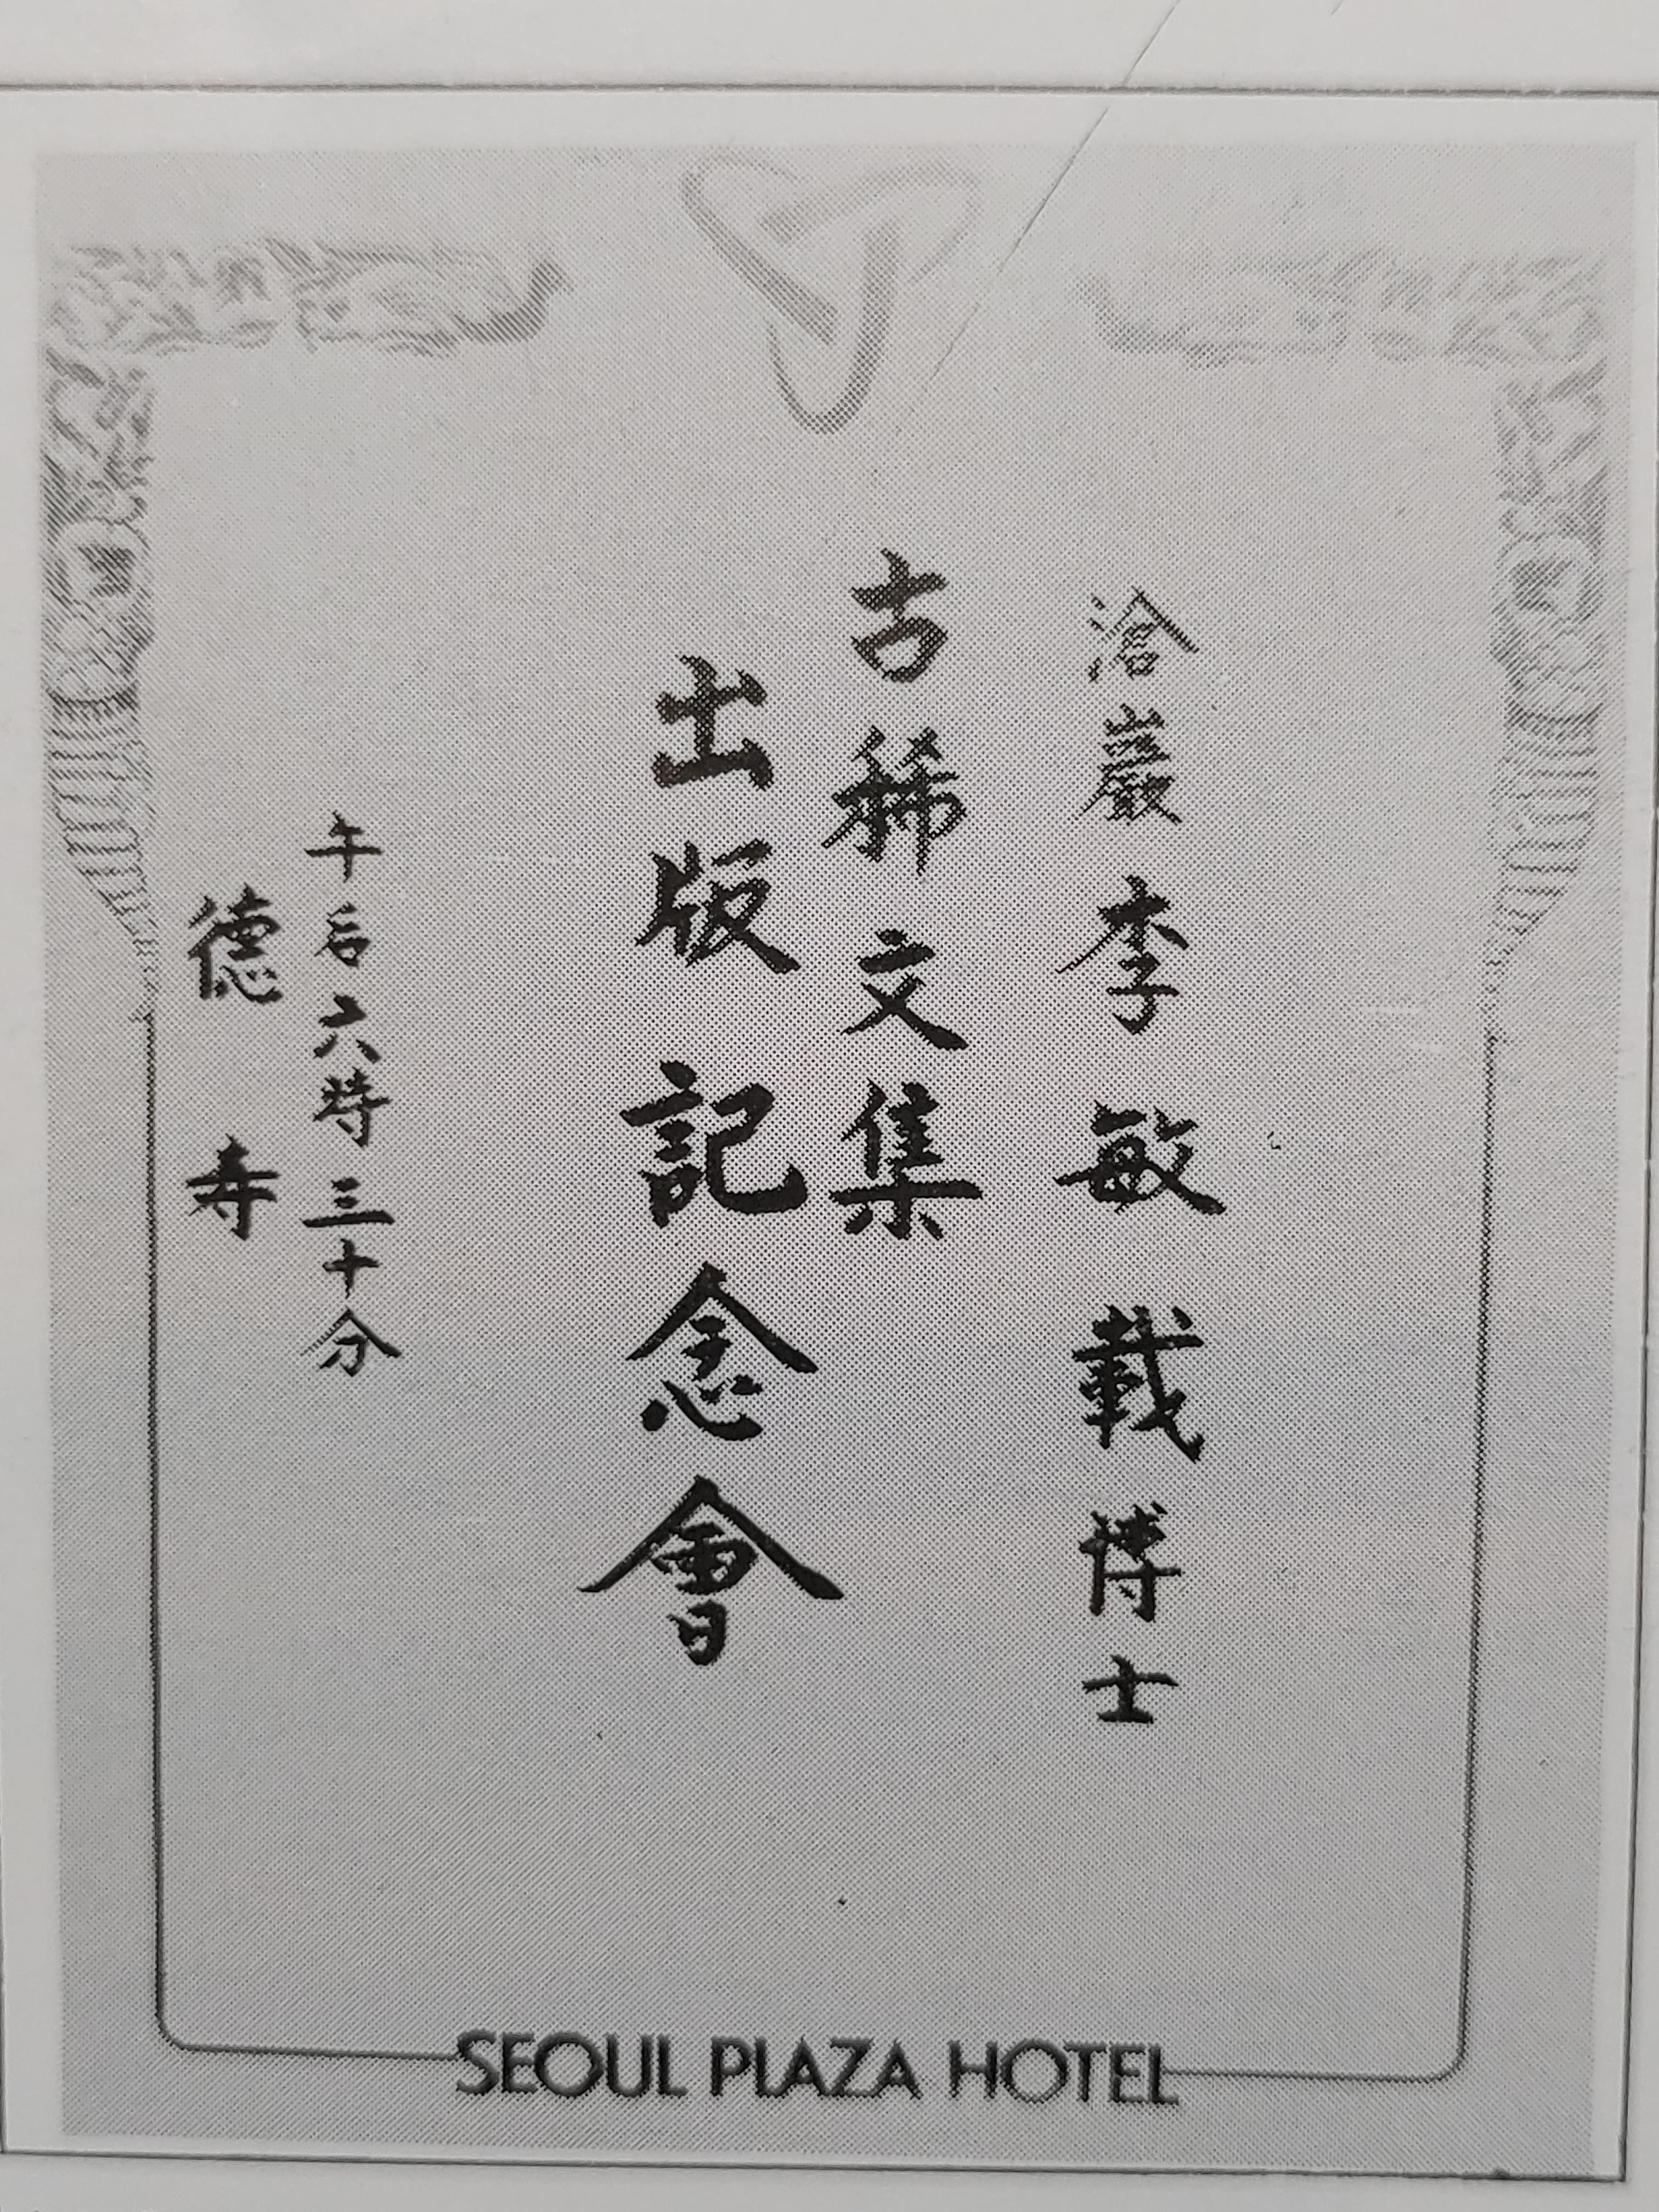 滄巖李敏載博士
古稀文集
出版記念會
午后六時三十分
德寿
SEOUL PLAZA HOTEL